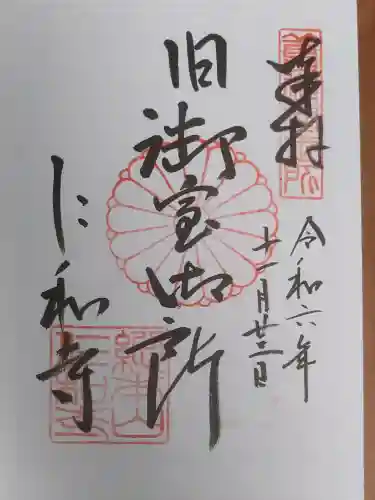 奉拝
令和六年
十一月廿三日
旧御室御所
仁和寺